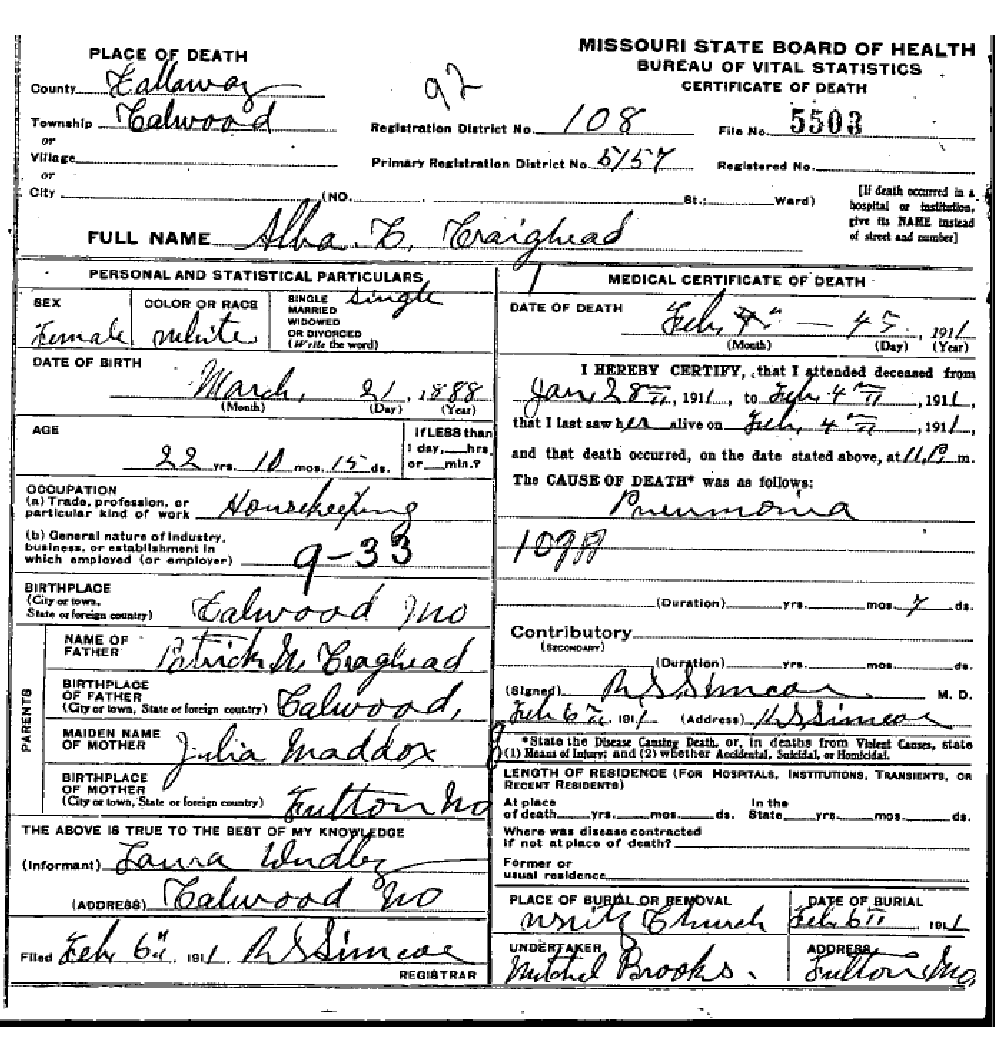 MISSOURI STATE BOARD OF HEALTH
BUREAU OF VITAL STATISTICS
CERTIFICATE OF DEATH
PLACE OF DEATH
County Callaway
92
Township Calwood
or
Registration District No. 108
File No. 5503
Village
or
Primary Registration District No. 5157
Registered No.
City (NO. St.; Ward)
[If death occurred in a
hospital or institution,
give its NAME instead
of street and number]
FULL NAME Alba C. Craighead
PERSONAL AND STATISTICAL PARTICULARS
SEX
Female
COLOR OR RACE
white
SINGLE
MARRIED
WIDOWED
OR DIVORCED
(Write the word)
single
DATE OF BIRTH
March, 21, 1888
(Month) (Day) (Year)
AGE
22 yrs. 10 mos. 15 ds.
If LESS than
1 day, hrs.
or min.?
OCCUPATION
(a) Trade, profession, or
particular kind of work Housekeeping
(b) General nature of industry,
business, or establishment in
which employed (or employer) 9-33
BIRTHPLACE
(City or town,
State or foreign country) Calwood Mo
PARENTS
NAME OF
FATHER Patrick Craghead
BIRTHPLACE
OF FATHER
(City or town, State or foreign country) Calwood,
MAIDEN NAME
OF MOTHER Julia Maddox
BIRTHPLACE
OF MOTHER
(City or town, State or foreign country) Fulton Mo
THE ABOVE IS TRUE TO THE BEST OF MY KNOWLEDGE
(Informant) Laura
(ADDRESS) Calwood Mo
Filed Feb 6th, 1911 R S Simcoe
REGISTRAR
MEDICAL CERTIFICATE OF DEATH
DATE OF DEATH
Feb, 1911
(Month) (Day) (Year)
I HEREBY CERTIFY, that I attended deceased from
Jan, 28th, 1911, to Feb, 4th, 1911,
that I last saw her alive on Feb, 4th, 1911,
and that death occurred, on the date stated above, at 11 P m.
The CAUSE OF DEATH* was as follows:
Pneumonia
(Duration) yrs. mos. 7 ds.
Contributory
(SECONDARY)
(Duration) yrs. mos. ds.
(Signed) R S Simcoe M. D.
Feb 6th 1911 (Address) R S Simcoe
*State the Disease Causing Death, or, in deaths from Violent Causes, state
(1) Means of Injury; and (2) whether Accidental, Suicidal, or Homicidal.
LENGTH OF RESIDENCE (FOR HOSPITALS, INSTITUTIONS, TRANSIENTS, OR
RECENT RESIDENTS)
At place
of death yrs. mos. ds.
In the
State yrs. mos. ds.
Where was disease contracted
if not at place of death?
Former or
usual residence
PLACE OF BURIAL OR REMOVAL
Church
DATE OF BURIAL
Feb, 6th 1911
UNDERTAKER
Mitchel Brooks.
ADDRESS
Fulton Mo,